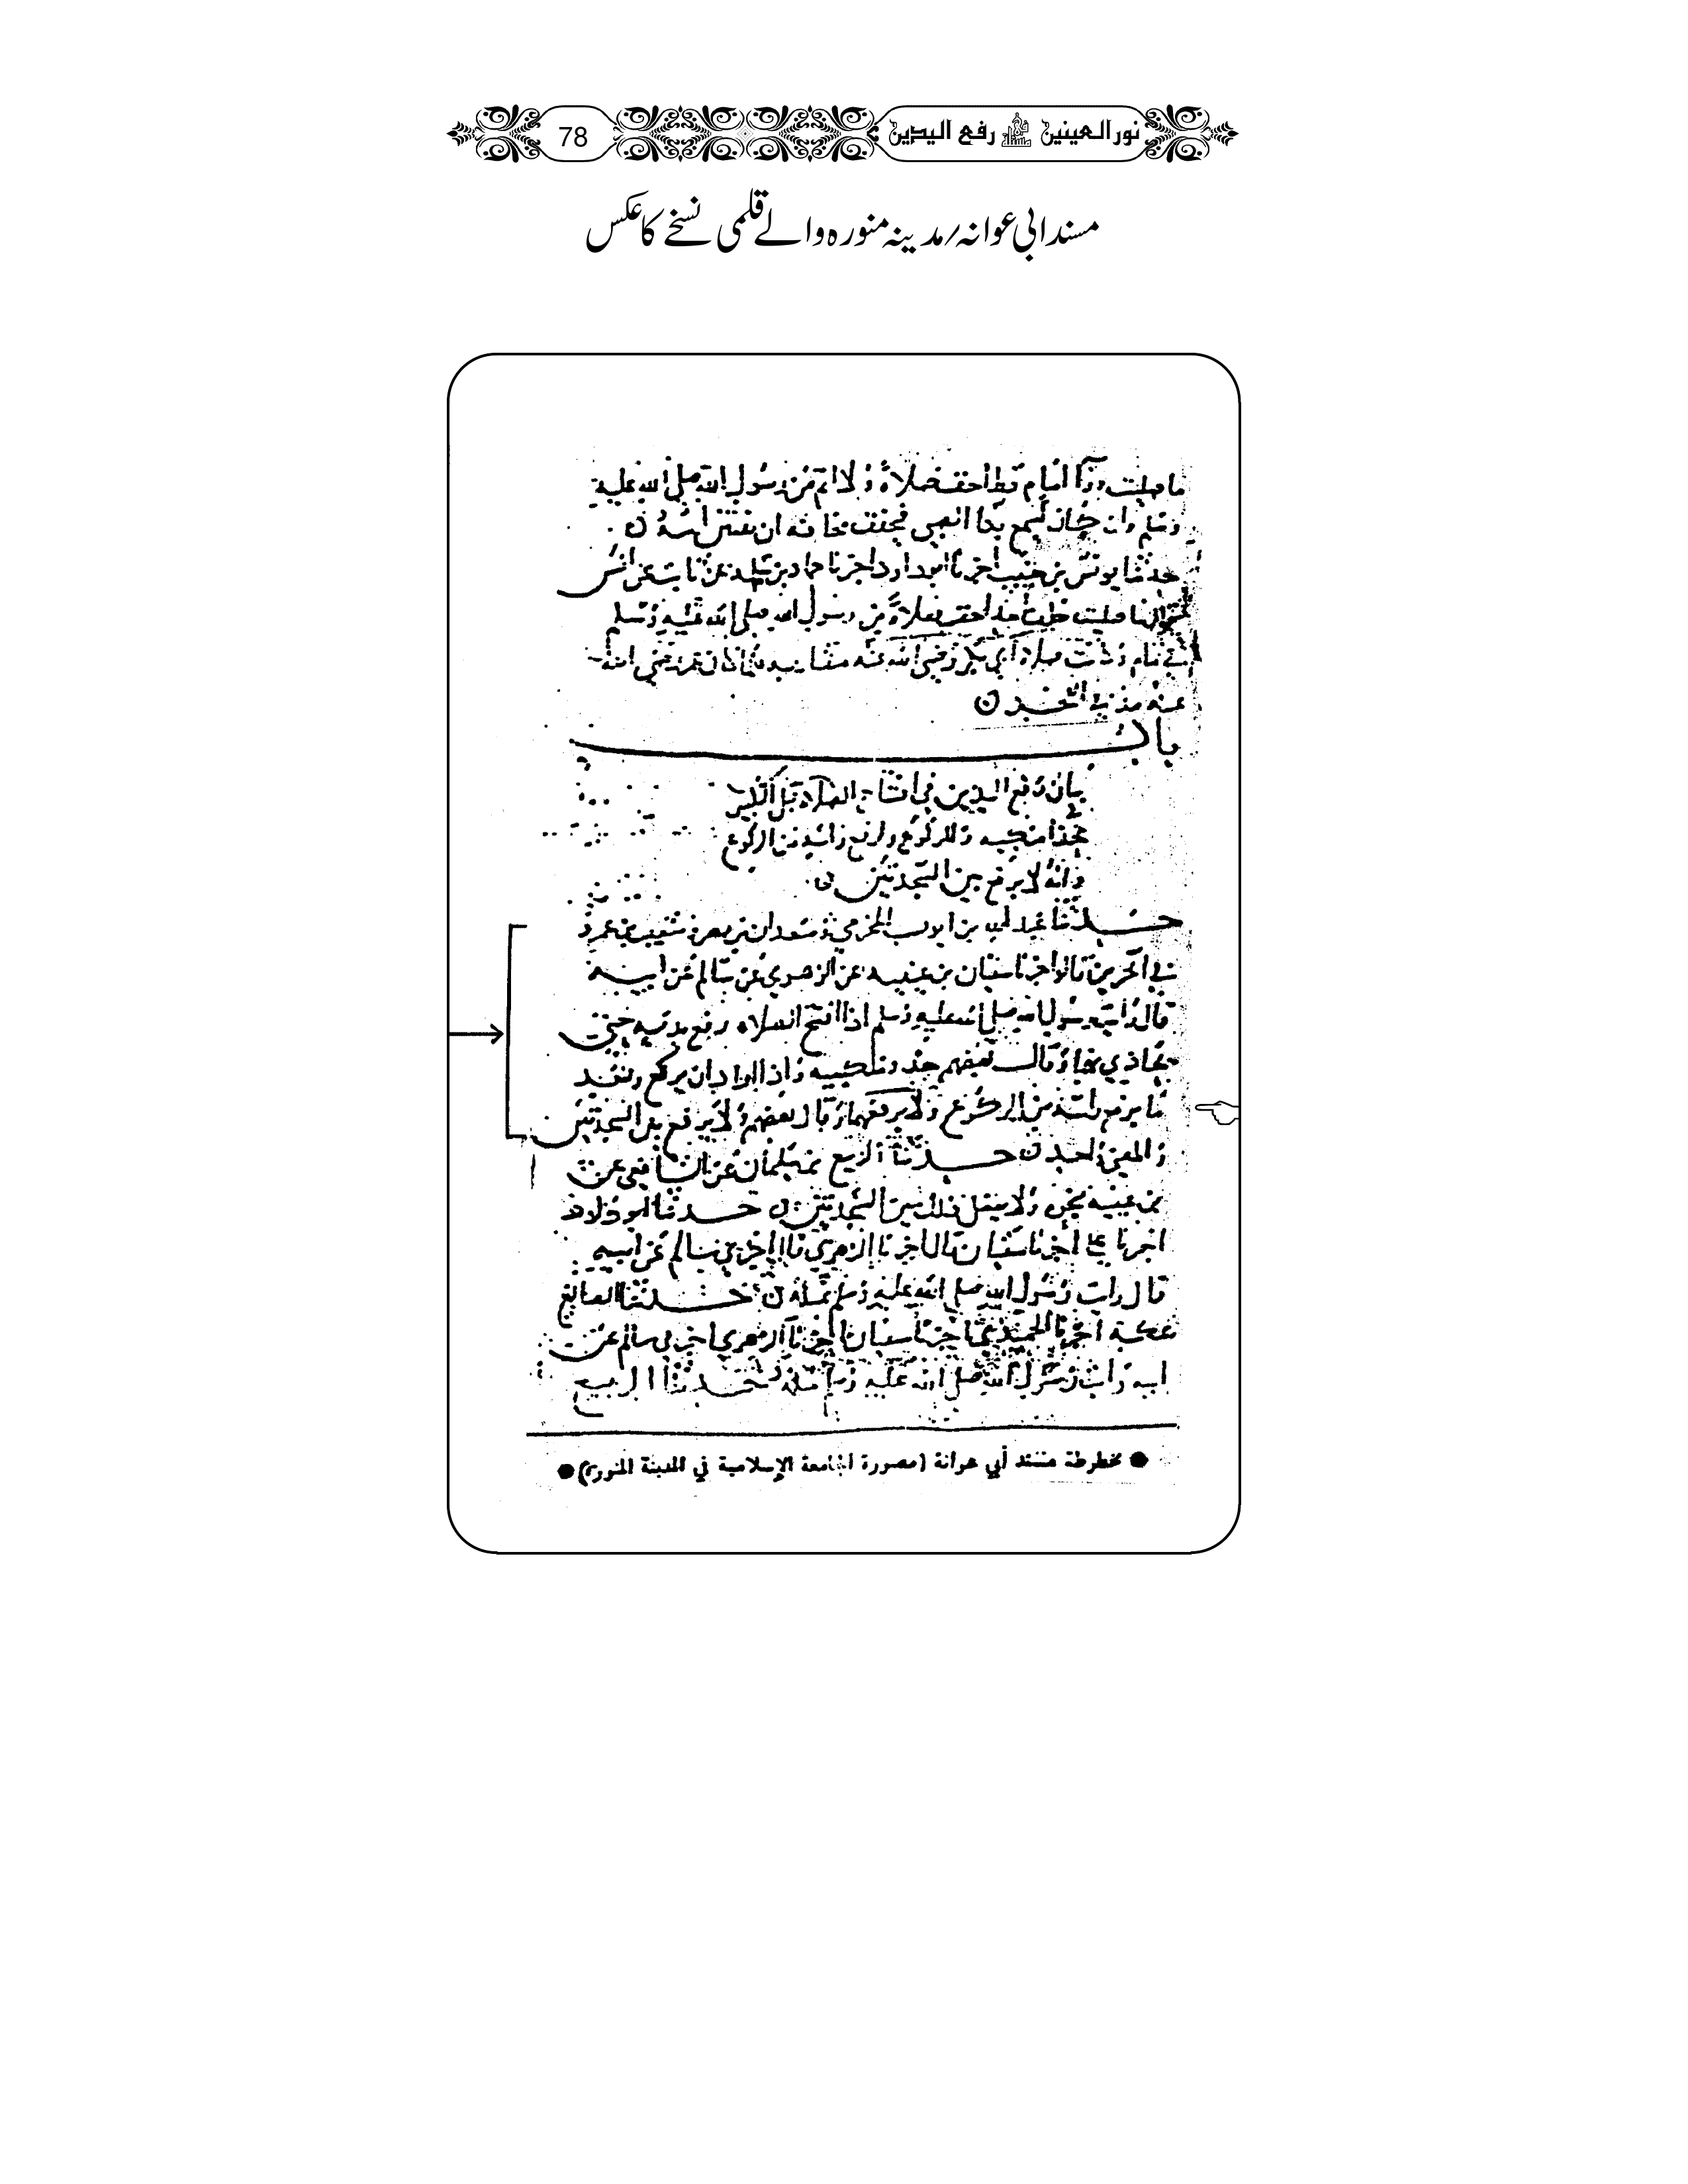 نور العینین فی مسئلہ رفع الیدین
78
مسند ابی عوانہ؍مدینہ منورہ والے قلمی نسخے کا عکس
ما صليت وراء امام قط احف صلاة ولا اتم من رسول الله صلى الله عليه
وسلم وان كان ليسمع بكا الصبي فيخفف مخافة ان تفتتن امه
حدثنا يونس بن حبيب اخبرنا ابو داود اخبرنا حماد بن سلمة عن ثابت عن انس
ما صليت خلف احد اخف صلاة من رسول الله صلى الله عليه وسلم
في تمام وكانت صلاة أبي بكر رضي الله عنه متقاربة فلما كان عمر رضي الله
عنه مد في
باب
بيان رفع اليدين في افتتاح الصلاة قبل التكبير
بحذا منكبيه وللركوع ولرفع راسه من الركوع
وانه لا يرفع بين السجدتين
حدثنا عبد الله بن ايوب المخرمي وسعدان بن نصر وشعيب بن عمرو
في اخرين قالوا اخبرنا سفيان بن عيينه عن الزهري عن سالم عن ابيه
قال رايت رسول الله صلى الله عليه وسلم اذا افتتح الصلاه رفع يديه حتى
يحاذي بهما وقال بعضهم حذو منكبيه واذا اراد ان يركع وبعد
ما يرفع راسه من الركوع ولا يرفعهما وقال بعضهم ولا يرفع بين السجدتين
والمعنى واحد حدثنا الربيع بن سليمان عن الشافعي عن
بن عيينه نحوه ولا يفعل ذلك بين السجدتين حدثنا ابو داود
اخبرنا علي اخبرنا سفيان قال اخبرنا الزهري قال اخبرني سالم عن ابيه
قال رايت رسول الله صلى الله عليه وسلم بمثله حدثنا الصائغ
بمكة اخبرنا الحميدي اخبرنا سفيان اخبرنا الزهري اخبرني سالم عن
ابيه رايت رسول الله صلى الله عليه وسلم مثله حدثنا الربيع
مخطوطة مسند أبي عوانة (مصورة الجامعة الإسلامية في المدينة المنورة)